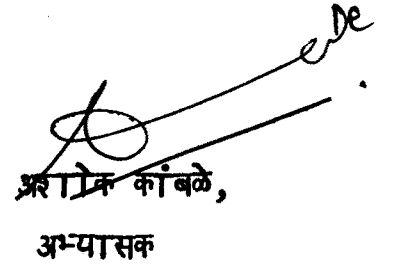 अशोक कांबळे,
अभ्यासक